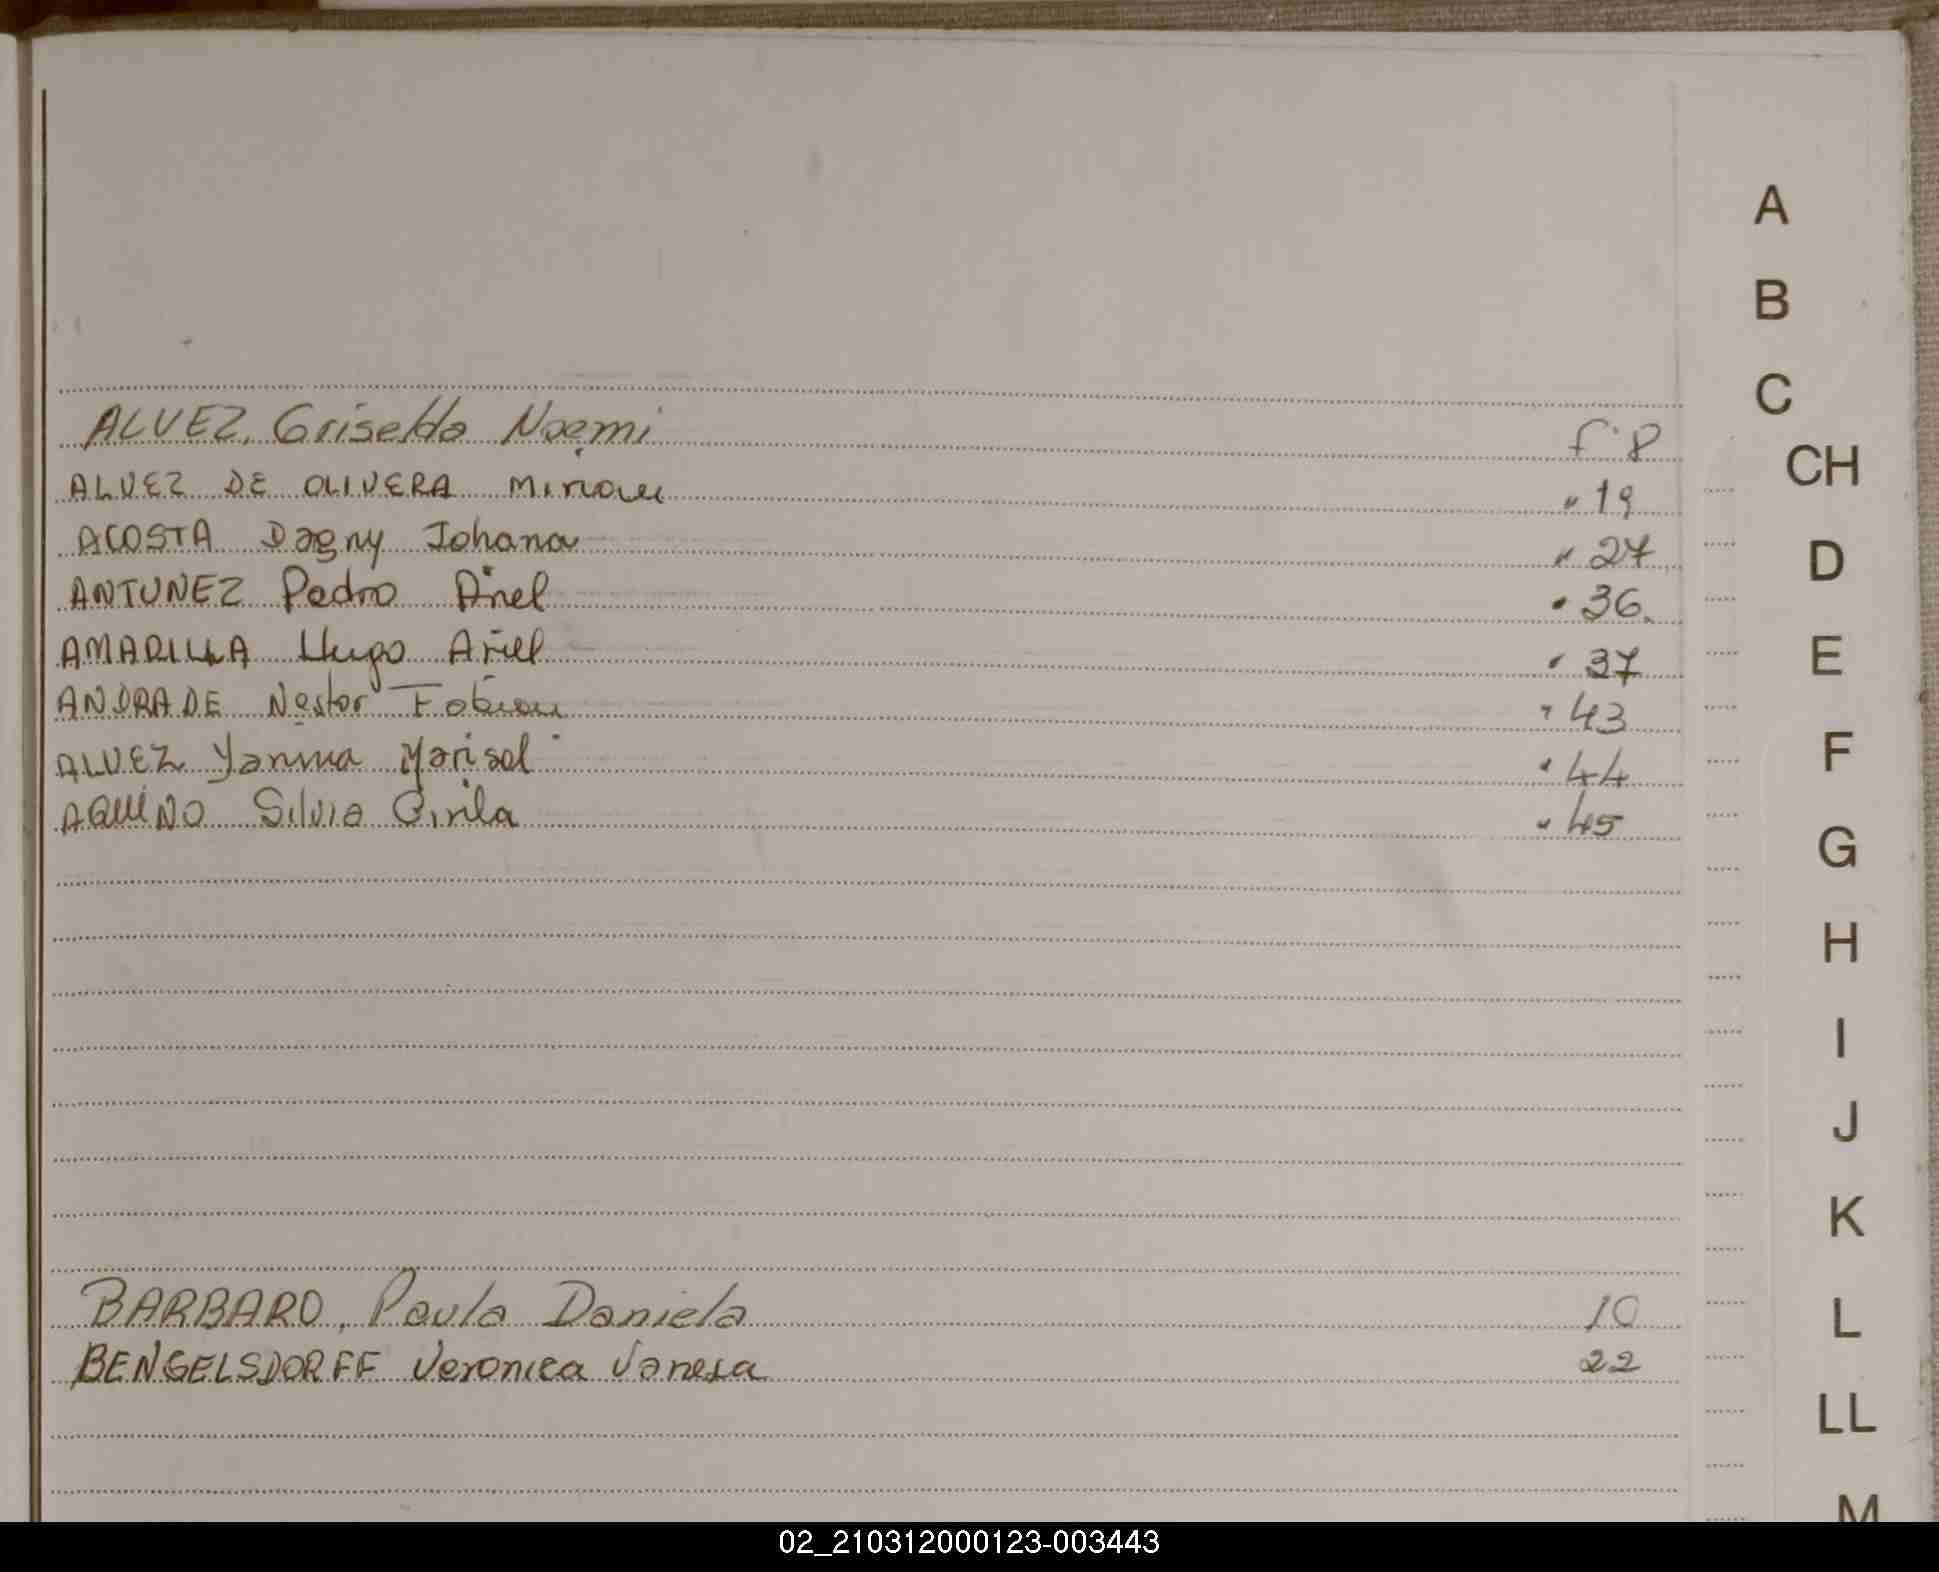 ALVEZ, Griselda Noemi f° 8
ALVEZ DE OLIVERA Miriam " 19
ACOSTA Dagny Johana " 27
ANTUNEZ Pedro Ariel " 36
AMARILLA Hugo Ariel " 37
ANDRADE Nestor Fabian " 43
ALVEZ Yanina Marisol " 44
AQUINO Silvia Cirila " 45
BARBARO, Paula Daniela 10
BENGELSDORFF Veronica Vanesa 22
A
B
C
CH
D
E
F
G
H
I
J
K
L
LL
M
02_210312000123-003443